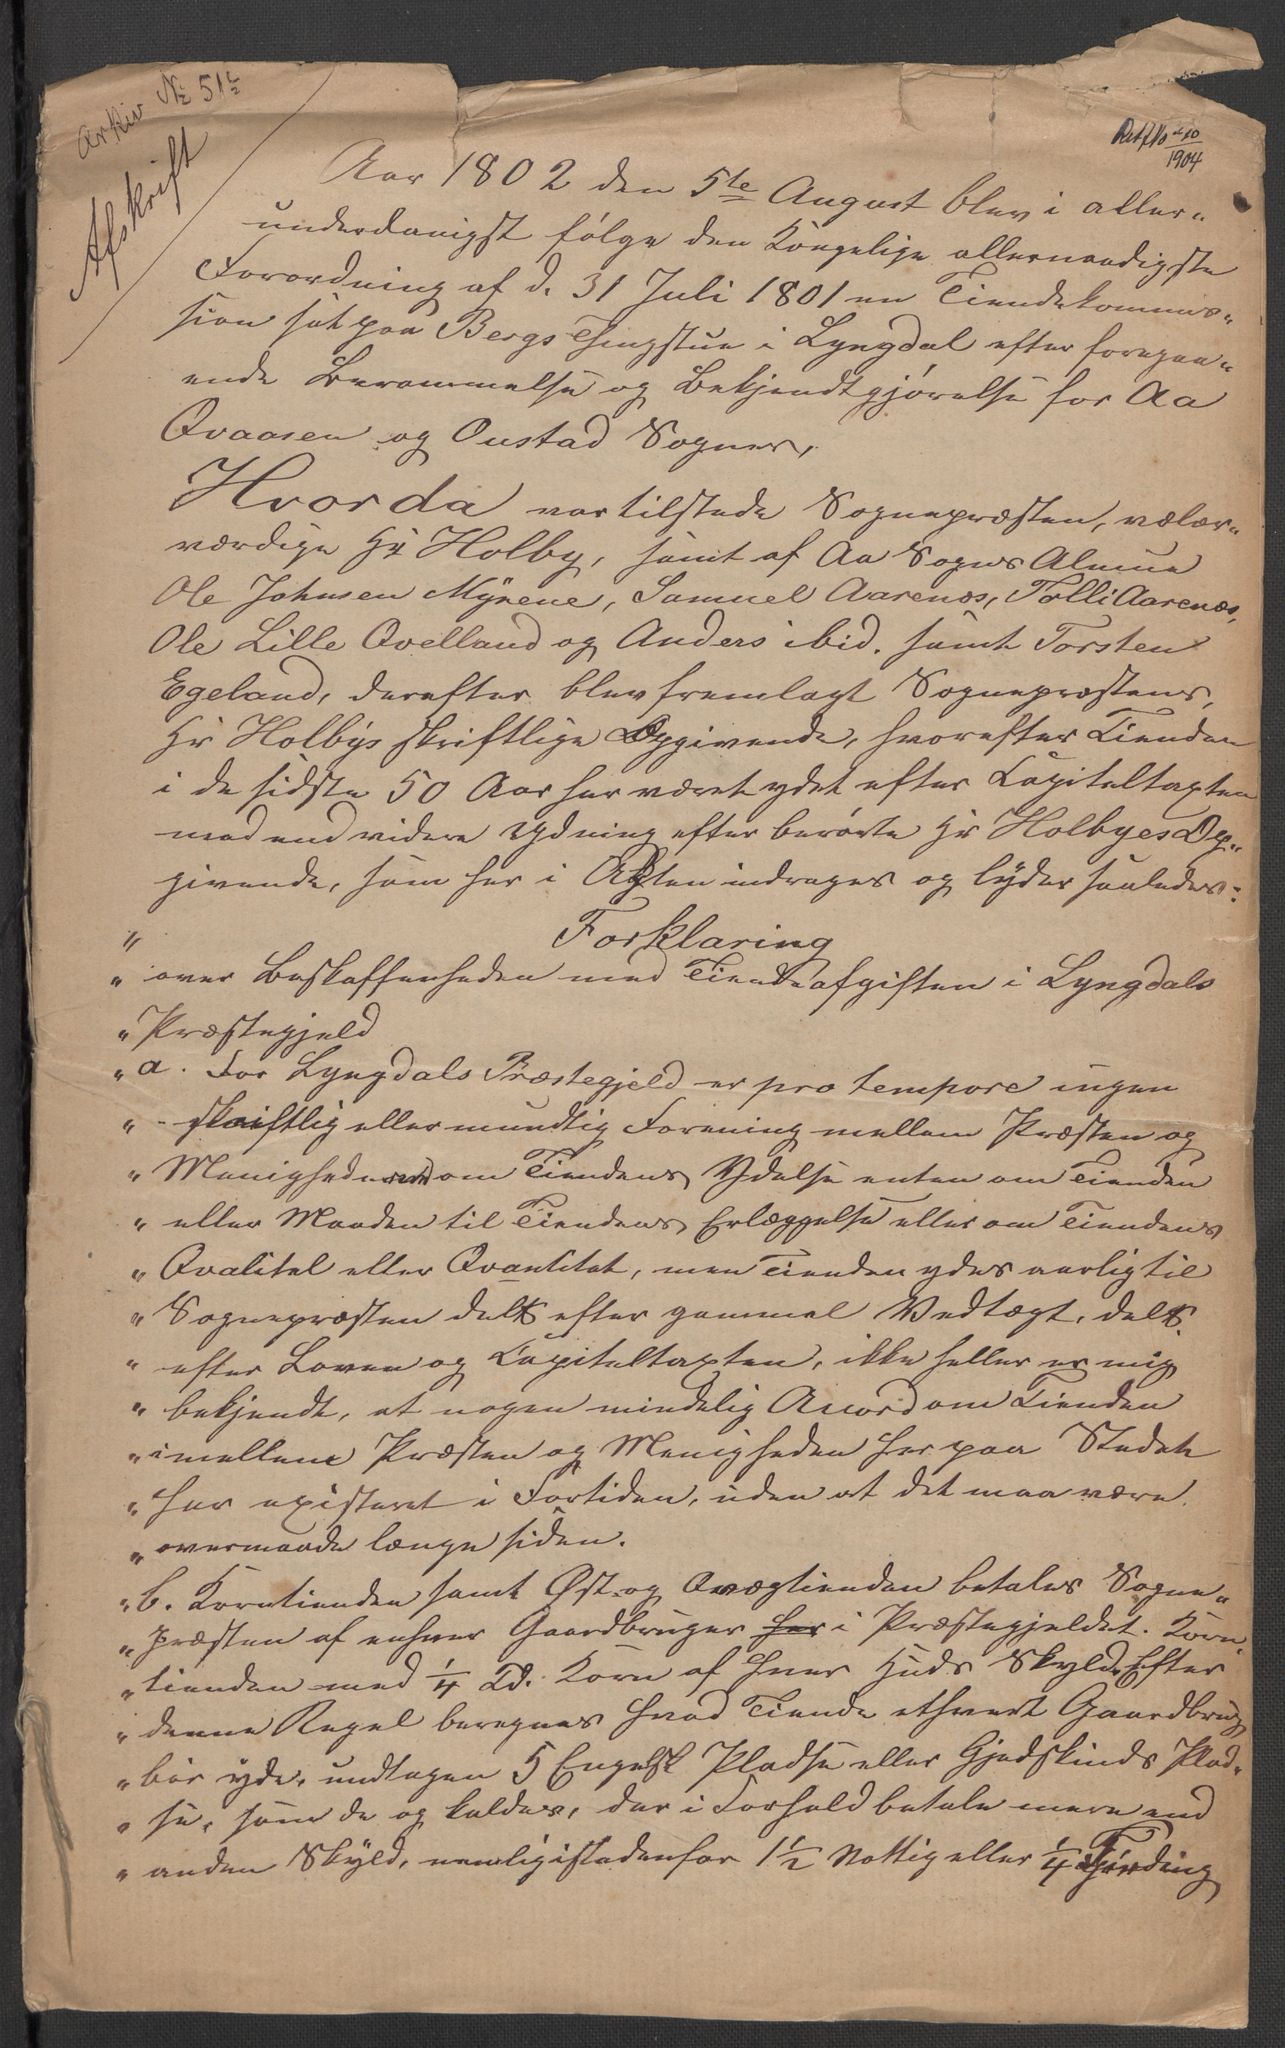 Arkiv № 51½
Afskrift
1904
Aar 1802 den 5te August blev i aller-
underdanigst følge den Kongelige allernaadigste
Forordning af d. 31 Juli 1801 en Tiendekommis-
sion sat paa Bergs Thingstue i Lyngdal efter foregaa-
ende Berammelse og Bekjendtgjørelse for Aa
Qvaasen og Oustad Sogner,
Hvorda var tilstede Sognepræsten, velær-
værdige Hr Holby, samt af Aa Sogns Almue
Ole Johnsen Myrene, Samuel Aarenæs, Tolli Aarenæs,
Ole Lille Qvelland og Anders ibid. samt Torsten
Egeland, derefter blev fremlagt Sognepræstens,
Hr Holbys skriftlige Opgivende, hvorefter Tienden
i de sidste 50 Aar har været ydet efter Capiteltaxten
med end videre Ydning efter berørte Hr Holbyes Op-
givende, som her i Acten indrages og lyder saaledes:
" Forklaring
" over Beskaffenheden med Tiendeafgiften i Lyngdals
" Præstegjeld
" a. For Lyngdals Præstegjeld er pro tempore ingen
" skriftlig eller mundtlig Forening mellem Præsten og
" Menigheden om Tiendens Ydelse enten om Tienden
" eller Maaden til Tiendens Erlæggelse eller om Tiendens
" Qvalitel eller Qvantitet, men Tienden ydes aarlig til
" Sognepræsten dels efter gammel Vedtægt, dels
" efter Loven og Capiteltaxten, ikke heller er mig
" bekjendt, at nogen mindelig Accord om Tienden
" imellem Præsten og Menigheden her paa Stedet
" har existeret i Fortiden, uden at det maa være
" overmaade længe siden.
" b. Korntienden samt Ost- og Qvægtienden betales Sogne-
" præsten af enhver Gaardbruger her i Præstegjeldet. Korn-
" tienden med ¼ Td. Korn af hver Huds Skyld. Efter
" denne Regel beregnes hvad Tiende ethvert Gaardbrug
" bør yde, undtagen 5 Engelsk Pladse eller Gjedskinds Plad-
" se, som de og kaldes, der i Forhold betale mere end
" anden Skyld, nemlig istedenfor 1½ Nottig eller ¼ Fjerding